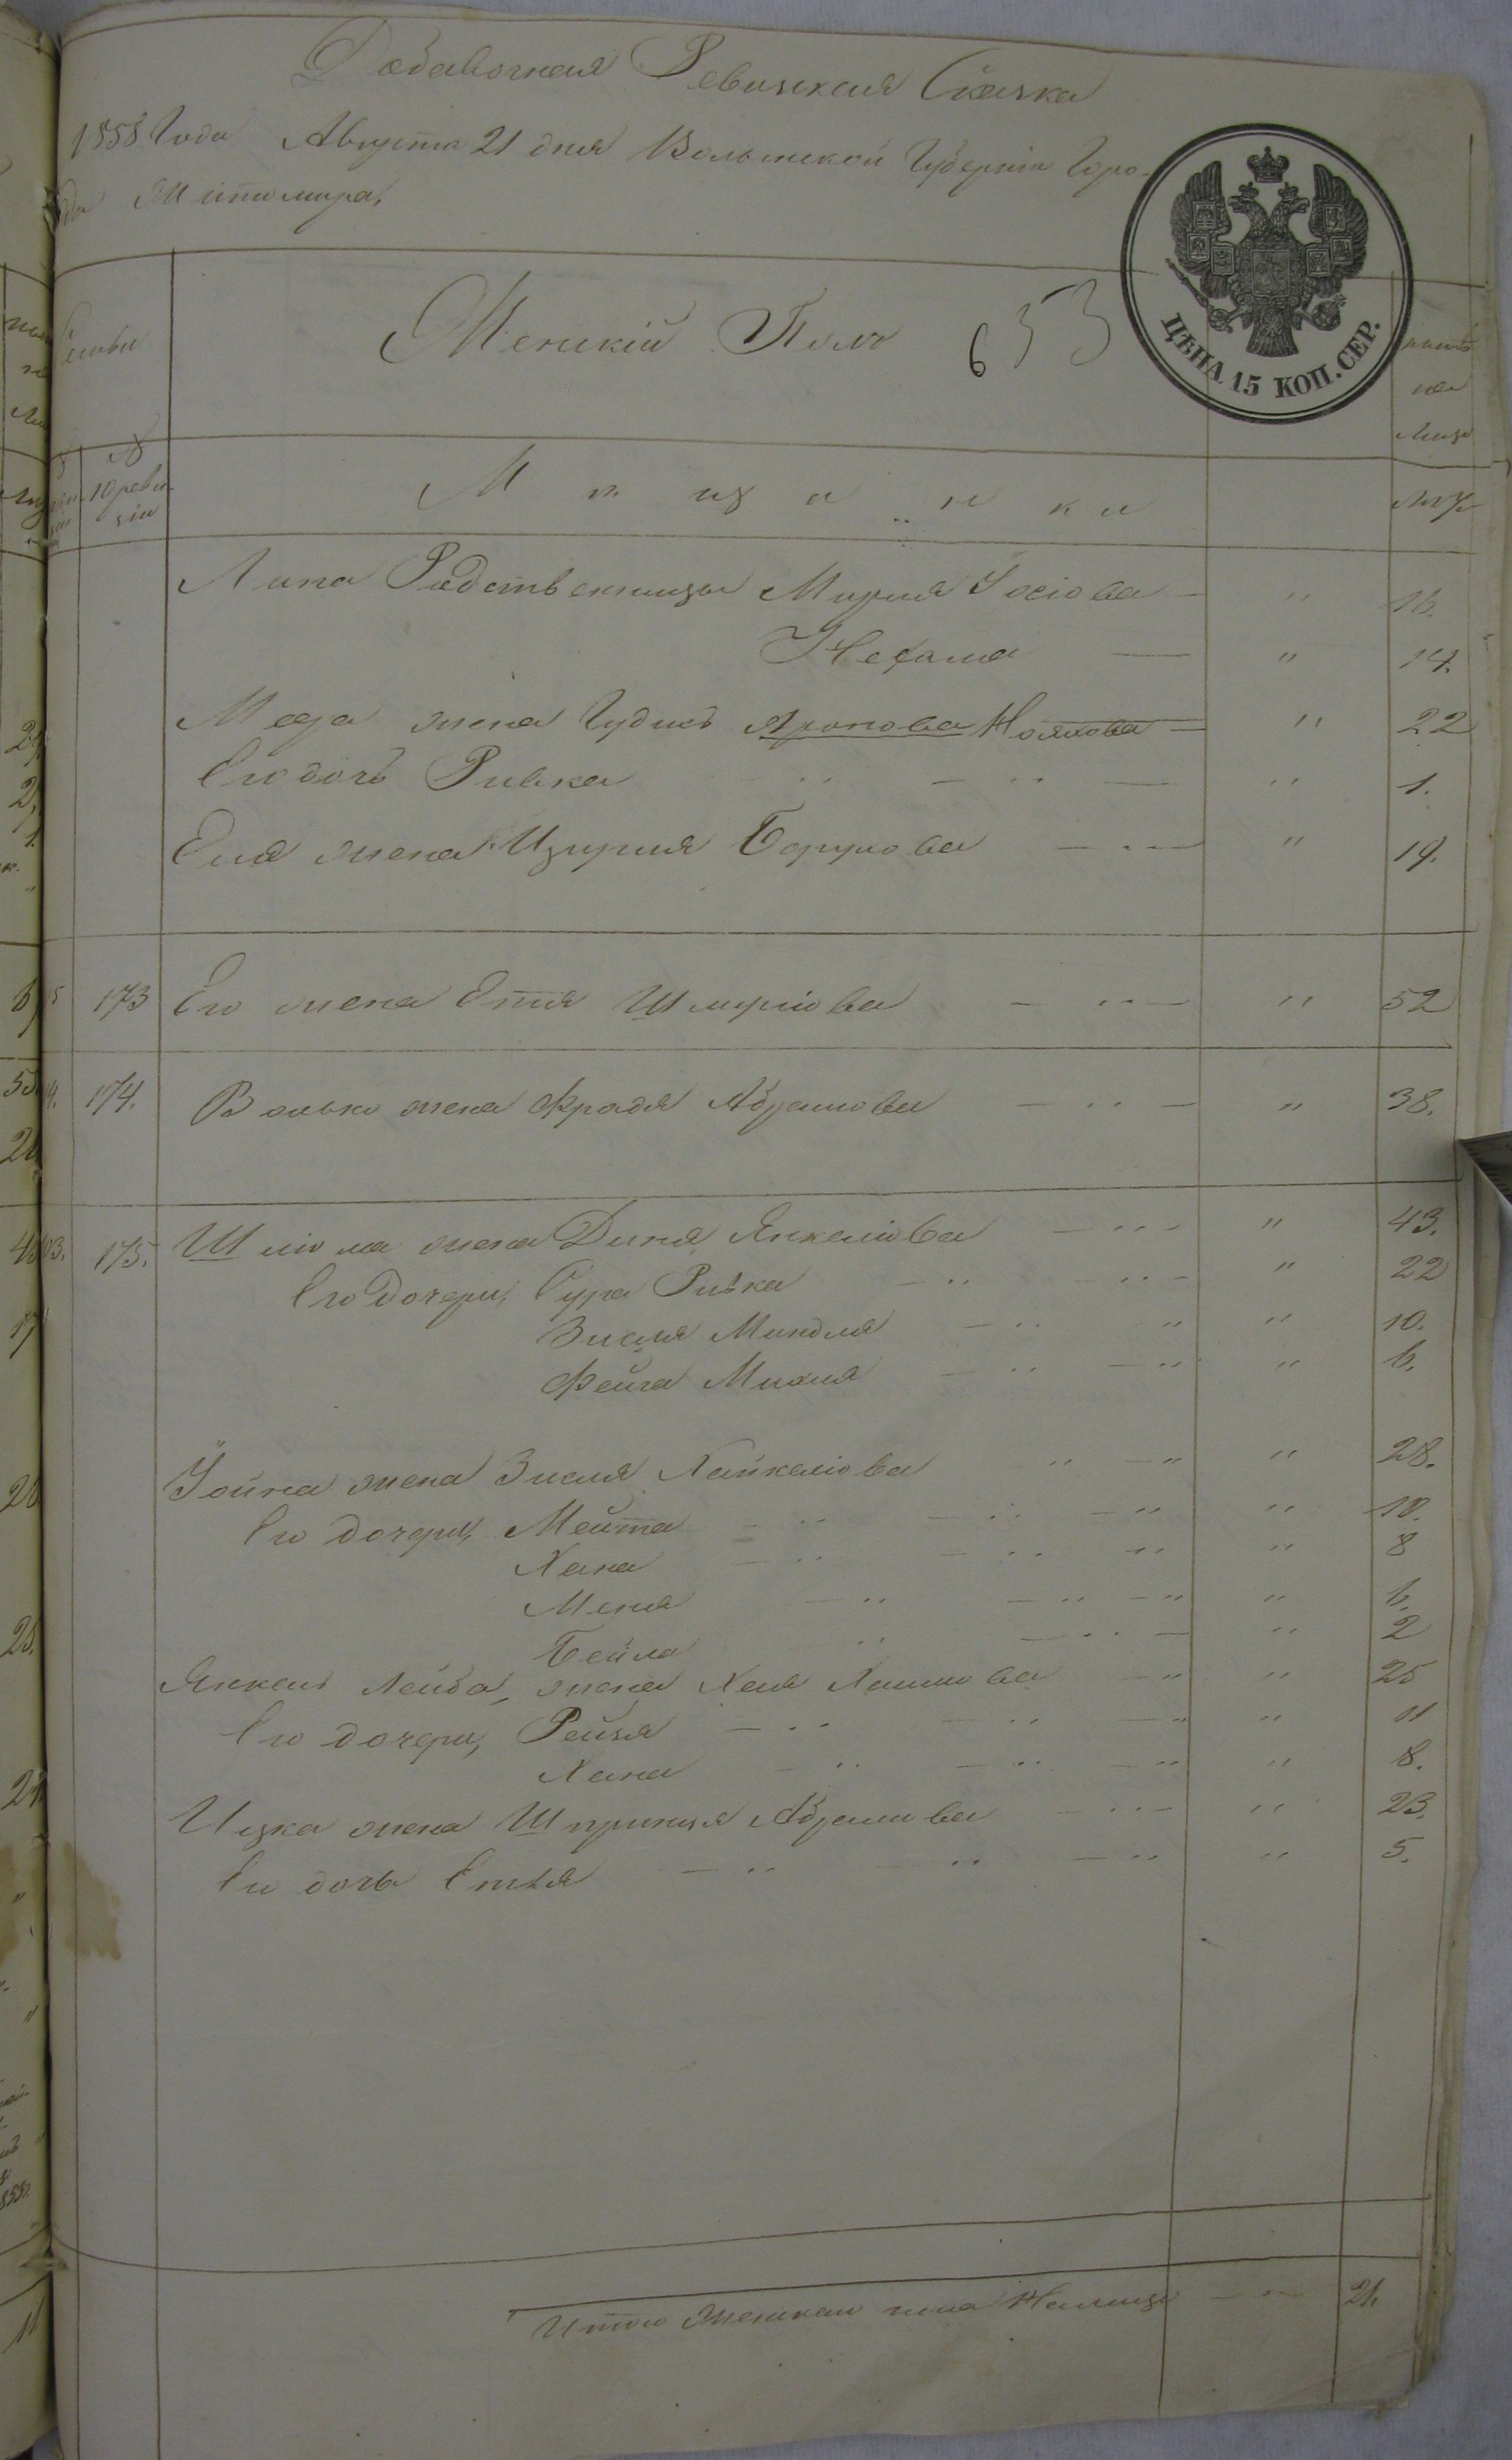 Добавочная Ревизская Сказка
1858 Года Августа 21 дня Волынской Губерніи Горо-
да Житомира,
ЦѢНА 15 КОП. СЕР.
Семьи
Женскій Полъ 653
на
лицо
№
10 реви-
зіи
Мѣщанки
Лѣта
Родственницы Мирля Іосіова — " 16.
Нехама — " 14.
жена Гудись Аронова — " 22
Его дочь Ривка — " 1.
Еля жена Борухова — " 19.
173 Его жена Етя Шмуліова — " 52
174. Волько жена Фрадя Абрамова — " 38.
175. Шліома жена Диня Янкеліова — " 43.
Его дочери, Сура Ривка — " 22
Зисля Миндля " 10.
Фейга Михля " 6.
Іойна жена Зисля Хайкеліова " 28.
Его дочери, Мейта " 10.
Хана " 8
Меня " 6.
Бейла " 2
Янкель Лейба, жена Хая Хаимова " 25
Его дочери, Рейзя " 11
Хана " 8.
Ицка жена Шпринця Абрамова " 23.
Его дочь Етля " 5.
Итого женскаго пола Налицо — 21.